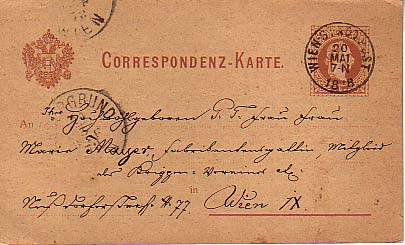 WIEN
CORRESPONDENZ-KARTE.
WIEN
20
MAI
7-N
An
Ihre Hochwohlgeboren P. T. Frau Frau
Marie Mayer, Fabrikantensgattin, Mitglied
des Krippen-Vereines etc.
in
Nußdorferstraße N. 77 Wien IX.